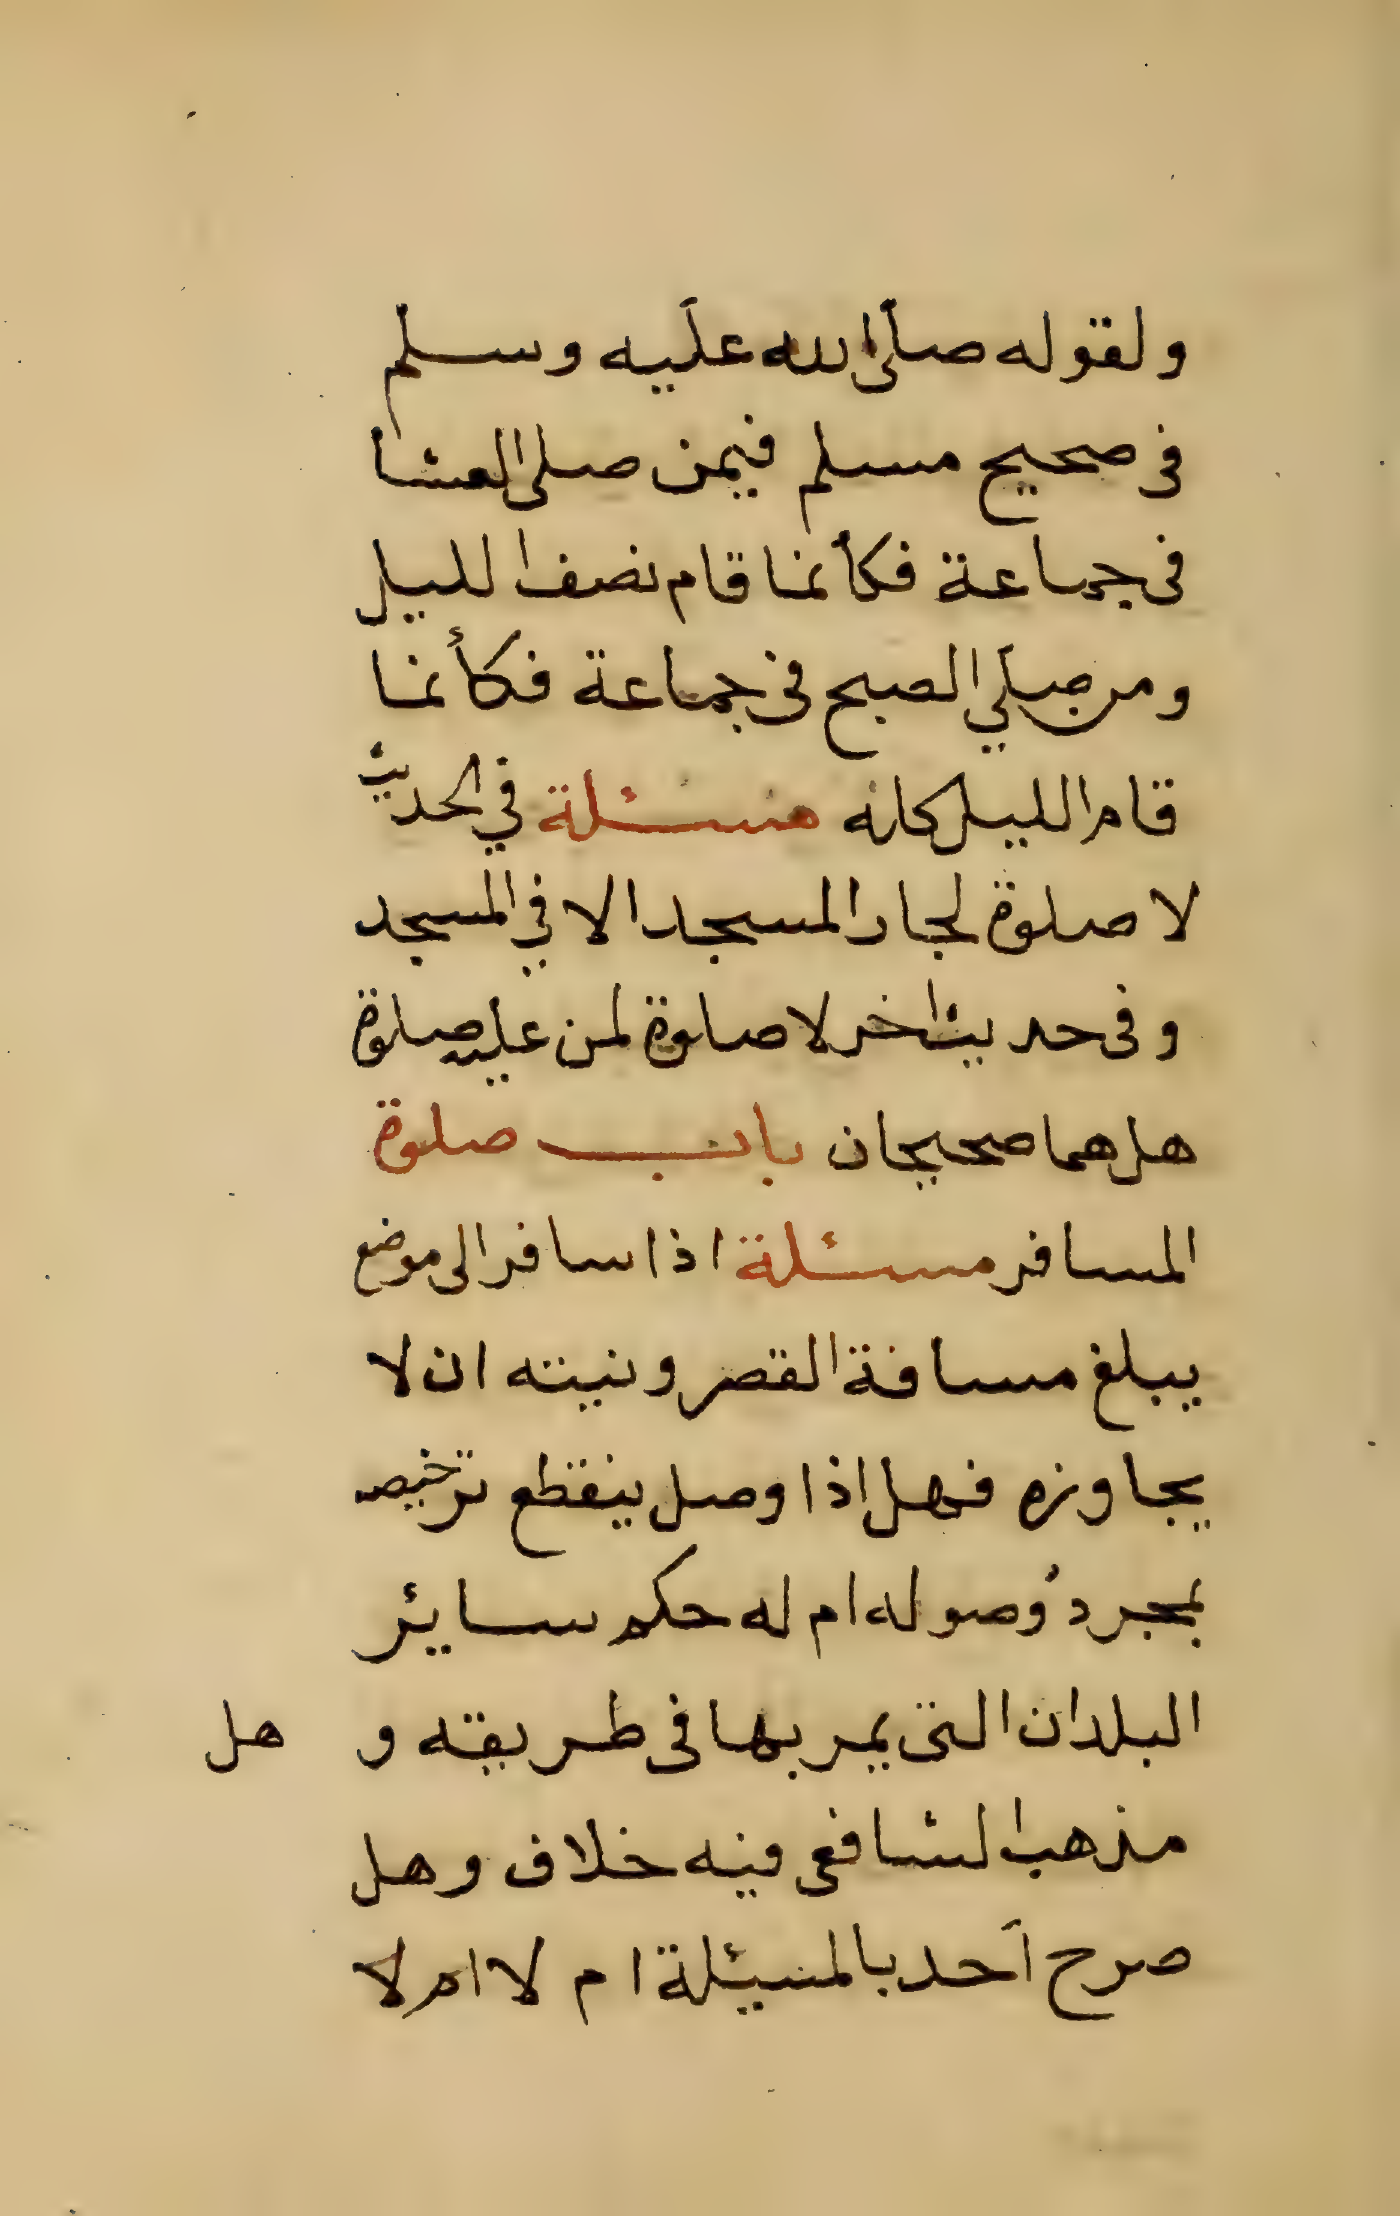 ولقوله صلى الله عليه وسلم
فى صحيح مسلم فيمن صلى العشا
فى جماعة فكأنما قام نصف الليل
ومن صلي الصبح فى جماعة فكأنما
قام الليل كله مسئلة في الحديث
لا صلوة لجار المسجد الا في المسجد
وفى حديث اخر لا صلوة لمن عليه صلوة
هل هما صحيحان باب صلوة
المسافر مسئلة اذا سافر الى موضع
يبلغ مسافة القصر ونيته ان لا
يجاوزه فهل اذا وصل ينقطع ترخيصه
بمجرد وُصوله ام له حكم سايئر
البلدان التى يمر بها فى طريقه و هل
مذهب الشافعى فيه خلاف وهل
صرح اَحد بالمسيئلة ام لا ام لا